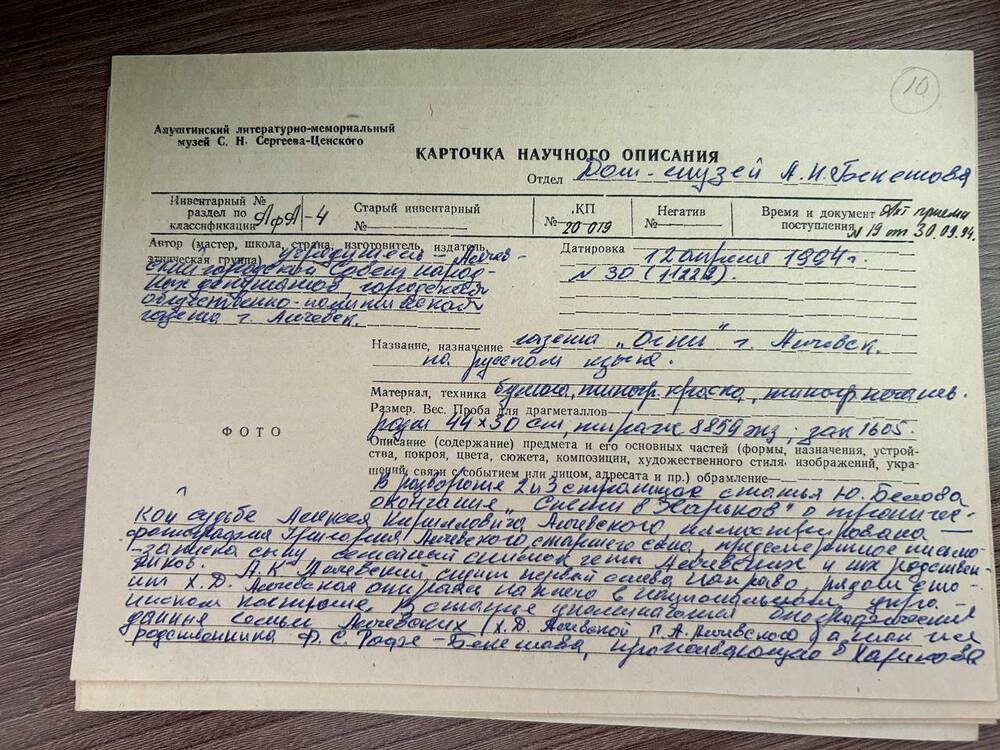 10
Алуштинский литературно-мемориальный
музей С. Н. Сергеева-Ценского
КАРТОЧКА НАУЧНОГО ОПИСАНИЯ
Отдел Дом-музей А.Н. Бекетова
Инвентарный №
раздел по
классификации АфА-4
Старый инвентарный
№
КП
№ 20 019
Негатив
№
Время и документ Акт приема
поступления N 19 от 30.09.94.
Автор (мастер, школа, страна, изготовитель, издатель,
этническая группа) учредитель - Алчев-
ский городской Совет народ-
ных депутатов, городская
общественно-политическая
газета г. Алчевск.
Датировка 12 апреля 1994 г.
N 30 (11222)
Название, назначение газета „Огни" г. Алчевск.
на русском языке.
Материал, техника бумага, типогр. краска, типогр. печать.
Размер. Вес. Проба для драгметаллов
разм 44х30 см, тираж 8859 экз; зак 1605.
ФОТО
Описание (содержание) предмета и его основных частей (формы, назначения, устрой-
ства, покроя, цвета, сюжета, композиции, художественного стиля изображений, укра-
шений, связи с событием или лицом, адресата и пр.) обрамление
В развороте 2 и 3 страницах статья Ю. Белова
окончание „Снега в Харьков" о трагичес-
кой судьбе Алексея Кирилловича Алчевского иллюстрирована
фотография Григория Алчевского старшего сына, предсмертное письмо-
-записка сыну семейный снимок четы Алчевских и их родствен-
ников. А.К Алчевский сидит первый слева направо, рядом стоит
Х.Д. Алчевская опираясь на плечо в национальном укра-
инском костюме. В статье упоминаются биографические
данные семьи Алчевских (Х.Д. Алчевской Г.А. Алчевского) а также
родственника Ф.С. Рофе-Бекетова, проживающего в Харькове